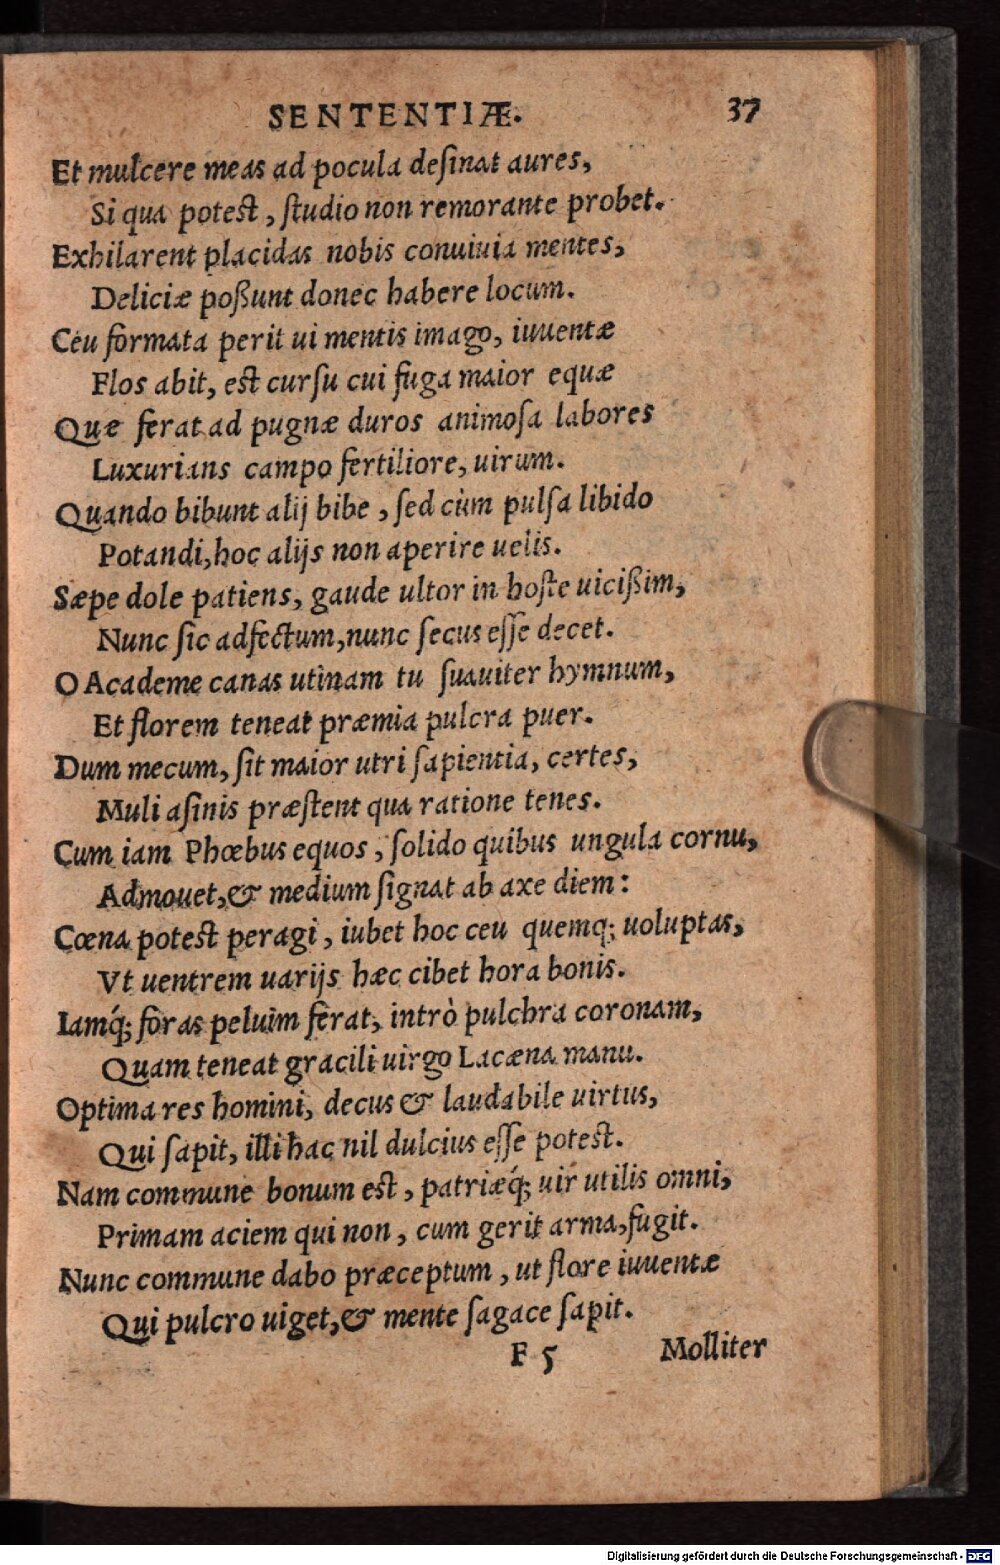 SENTENTIÆ. 37
Et mulcere meas ad pocula deſinat aures,
Si qua poteſt, ſtudio non remorante probet.
Exhilarent placidas nobis conuiuia mentes,
Deliciæ poßunt donec habere locum.
Ceu formata perit ui mentis imago, iuuentæ
Flos abit, eſt curſu cui fuga maior equæ
Quæ ferat ad pugnæ duros animoſa labores
Luxurians campo fertiliore, uirum.
Quando bibunt alij bibe, ſed cùm pulſa libido
Potandi, hoc alijs non aperire uelis.
Sæpe dole patiens, gaude ultor in hoſte uicißim,
Nunc ſic adfectum, nunc ſecus eſſe decet.
O Academe canas utinam tu ſuauiter hymnum,
Et florem teneat præmia pulcra puer.
Dum mecum, ſit maior utri ſapientia, certes,
Muli aſinis præſtent qua ratione tenes.
Cum iam Phœbus equos, ſolido quibus ungula cornu,
Admouet, & medium ſignat ab axe diem:
Cœna poteſt peragi, iubet hoc ceu quemq; uoluptas,
Vt uentrem uarijs hæc cibet hora bonis.
Iamq́; foras peluim ferat, intrò pulchra coronam,
Quam teneat gracili uirgo Lacæna manu.
Optima res homini, decus & laudabile uirtus,
Qui ſapit, illi hac nil dulcius eſſe poteſt.
Nam commune bonum eſt, patriæq́; uir utilis omni,
Primam aciem qui non, cum gerit arma, fugit.
Nunc commune dabo præceptum, ut flore iuuentæ
Qui pulcro uiget, & mente ſagace ſapit.
F 5 Molliter
Digitalisierung gefördert durch die Deutsche Forschungsgemeinschaft - DFG